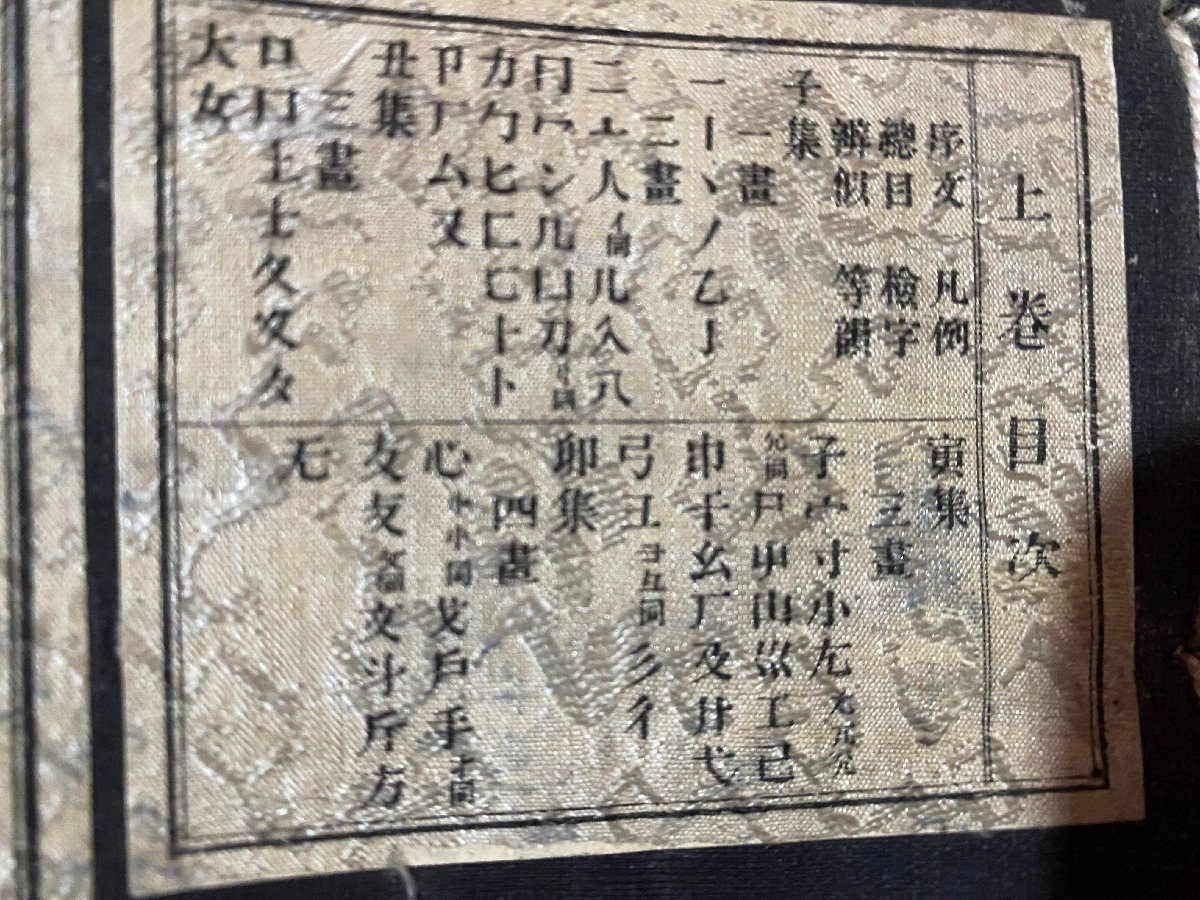 上卷目次
序文 凡例
總目 檢字
辨似 等韻
子集
一畫
一丨丶丿乙亅
二畫
二亠人亻同儿入八
冂冖冫几凵刀刂同
力勹匕匚匸十卜
卩厂厶又
丑集
三畫
口囗土士夂夊夕
大女
寅集
三畫
子宀寸小尢
尸屮山巛工己
巾干幺广廴廾弋
弓彐彑同彡彳
卯集
四畫
心忄㣺同戈戶手扌同
支攴攵同文斗斤方
无